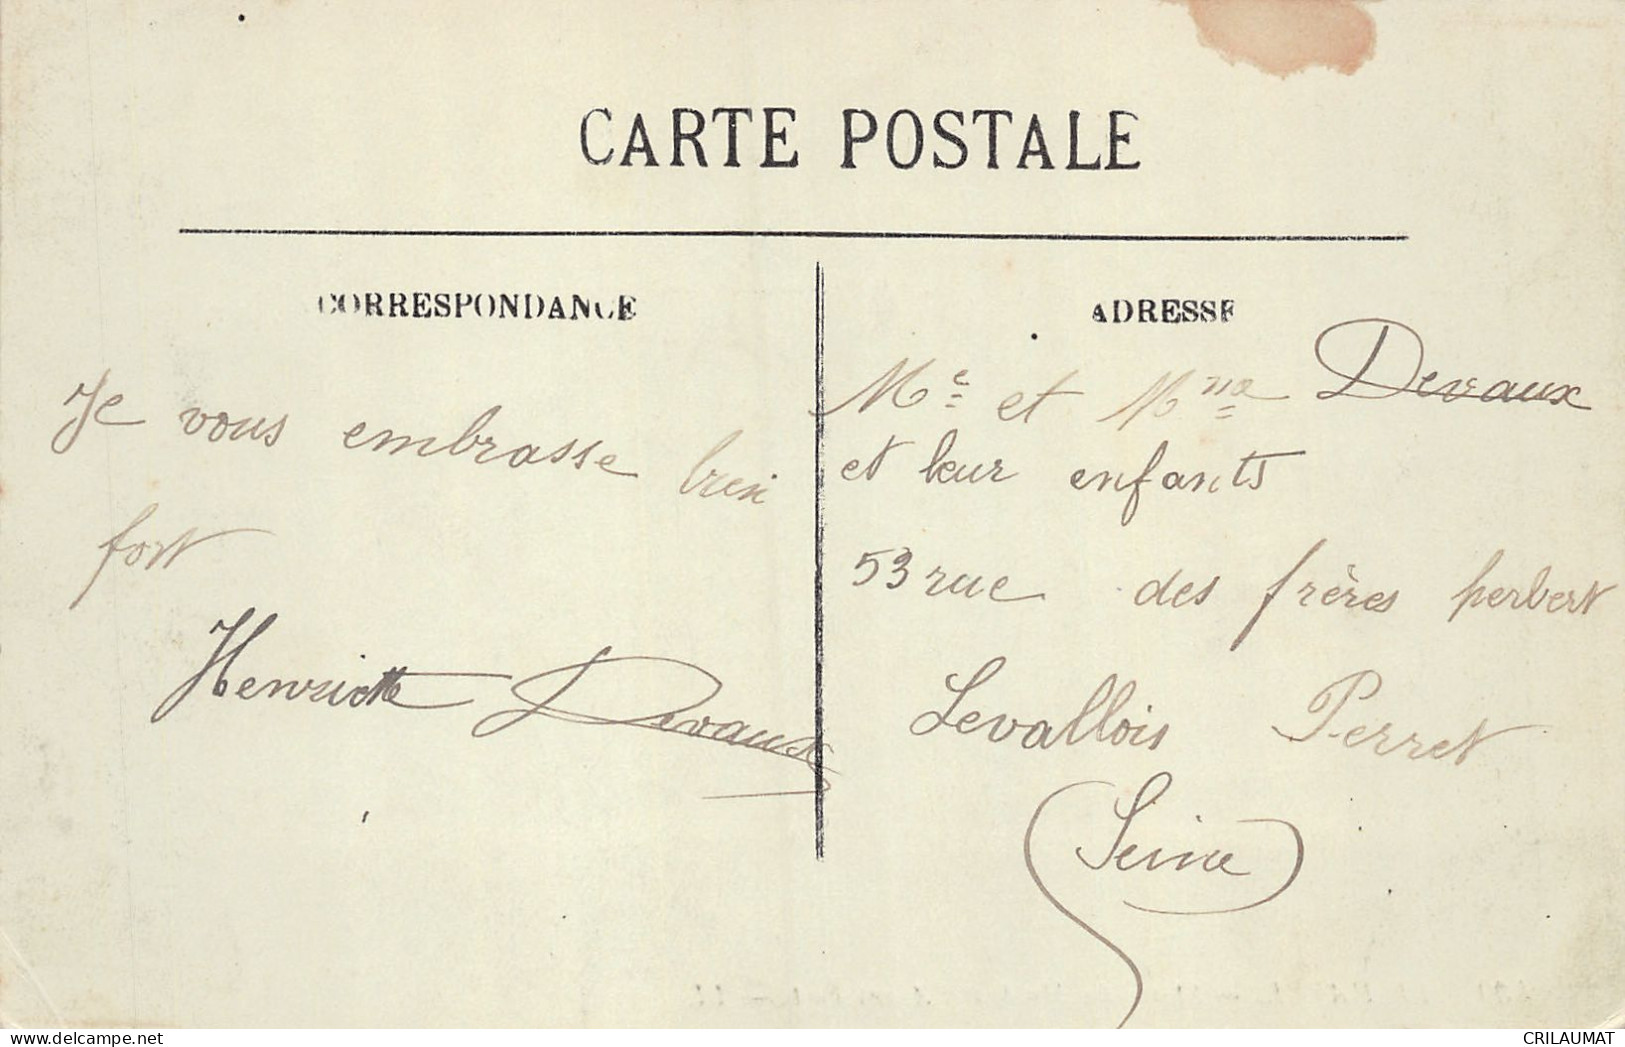 CARTE POSTALE
CORRESPONDANCE
ADRESSE
Je vous embrasse bien
fort
Henriette Devaux
Mr et Mme Devaux
et leur enfants
53 rue des frères herbert
Levallois Perret
(Seine)
CRILAUMAT